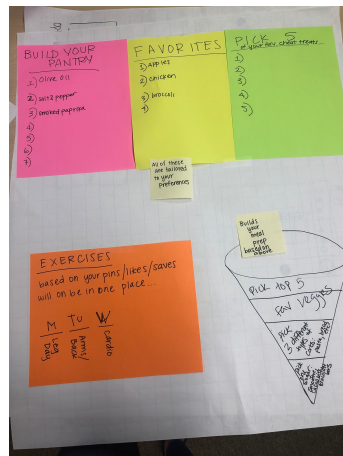 BUILD YOUR
PANTRY
1) Olive oil
2) salt & pepper
3) smoked paprika
4)
5)
6)
7)
FAVORITES
1) Apples
2) chicken
3) broccoli
4)
PICK 5
of your fav cheat treats...
1)
2)
3)
4)
5)
All of these
are tailored
to your
preferences
Builds
your
meal
prep
based on
above
EXERCISES
based on your pins/likes/saves
will on be in one place...
M
Leg
Day
TU
Arms/
Back
W
Cardio
Pick top 5
Fav veggies
Pick
3 different
types of
carbs